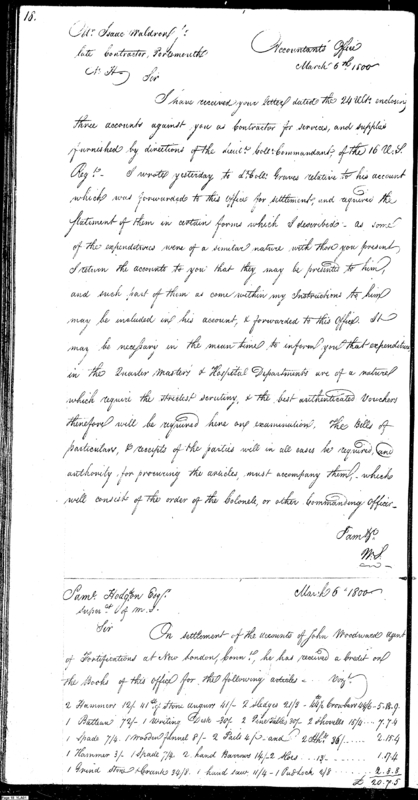 18.
Mr. Isaac Waldron Jr.
late Contractor, Portsmouth
N. H.
Accountants Office
March 6th 1800
Sir
I have received your letter dated the 24 Ulto. enclosing
three accounts against you as Contractor for services, and supplies
furnished by directions of the Lieut. Colo. Commandant, of the 16 U. S.
Regt. - I wrote yesterday to Colo. Graves relative to his account
which was forwarded to this office for settlement, and required the
statement of them in certain forms which I described - as some
of the expenditures were of a similar nature with those you present,
I return the accounts to you that they may be presented to him,
and such part of them as come within my Instructions to him
may be included in his account, & forwarded to this Office. It
may be necessary in the mean time to inform you that expenditures
in the Quarter Masters & Hospital Departments are of a nature
which require the strictest scrutiny, & the best authenticated Vouchers
therefore will be required here on examination. The Bills of
particulars, & receipts of the parties will in all cases be required, and
authority for procuring the articles, must accompany them, - which
will consist of the order of the Colonels, or other Commanding Officer -
I am &c.
W. S.
Saml. Hodgdon Esqr.
Supert. of M. S.
March 6th 1800
Sir
On settlement of the accounts of John Woodward Agent
of Fortifications at New London, Connt., he has received a Credit on
the Books of this office for the following articles - Vizt.
2 Hammers 12/. Stone augurs 41/- 2 Sledges 21/8 - Crowbar 44/6 - 5.18.9
1 Batteau 72/- 1 Writing Desk - 30/- 2 Shovells 15/4 - 7.7.4
1 Spade 7/4. 1 Wooden funnel 8/- 2 Pails 4/- and 36/- 2.15.4
1 Hammer 3/- 1 Spade 7/4 2 hand Barrows 14/- 2 Hoes - 1.17.4
1 Grind Stone & Cranks 34/8. 1 hand saw 11/4 - 1 Padlock 2/8 2.8.8
£ 20.7.5